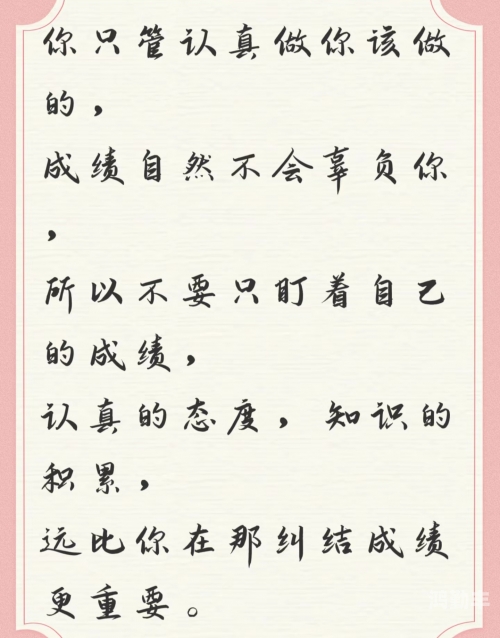 你只管认真做你该做
的，
成绩自然不会辜负你
，
所以不要只盯着自己
的成绩，
认真的态度，知识的
积累，
远比你在那纠结成绩
更重要。